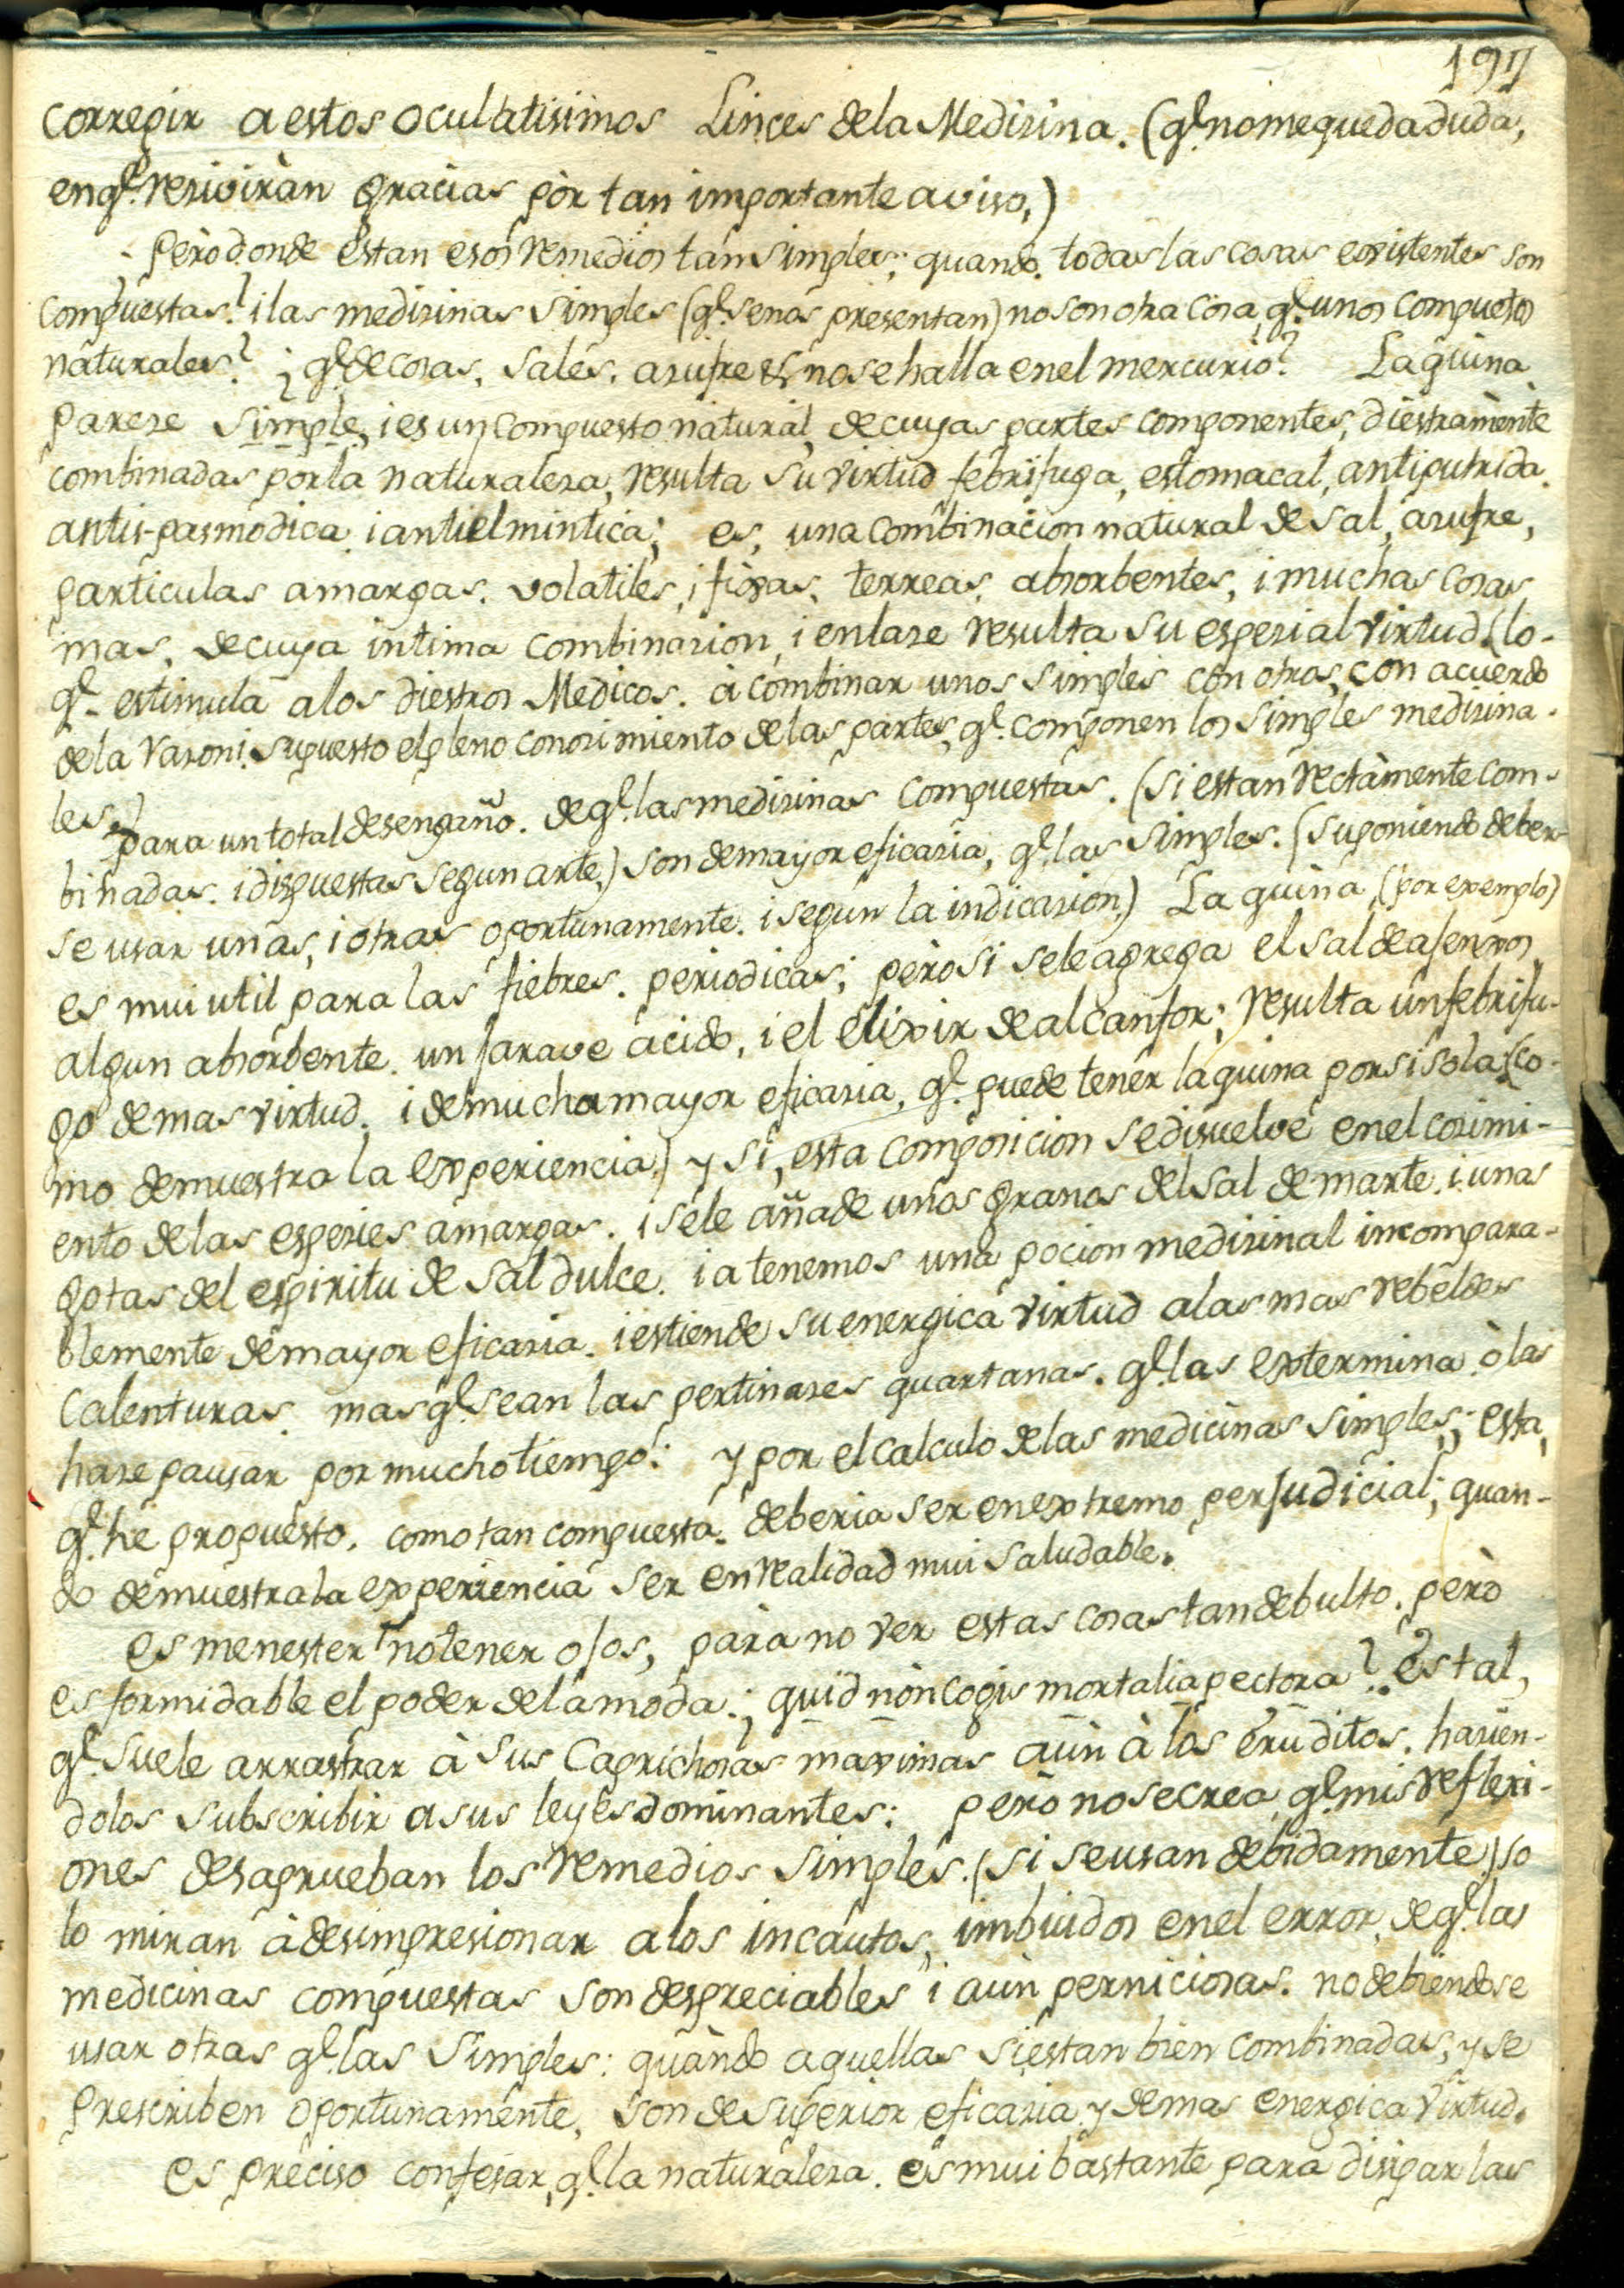 197
corregir a estos ocultatisimos Linces de la Medizina. (q.e no me queda duda,
en q.e reziviràn gracias pòr tan importante aviso,)
¿ Però donde estan esos remedios tan simples; quando. todas las cosas existentes son
compuestas? i las medizinas simples (q.e se nos presentan) no son otra cosa, q.e unos compuestos
naturales? ¿ q.e de cosas, sales, azufre &c. no se halla en el mercurio? La quina
pareze simple, i es un compuesto natural, de cuyas partes componentes, diestramente
combinadas por la naturaleza, resulta su virtud febrifuga, estomacal, antiputrida,
antis-pasmodica i antielmintica; es, una combinacion natural de sal, azufre,
particulas amargas, volatiles, i fixas, terreas, absorbentes, i muchas cosas
mas, de cuya intima combinazion, i enlaze resulta su espezial virtud (lo-
q.e estimula a los diestros Medicos. à combinar unos simples con otros, con acuerdo
de la razon: supuesto el pleno conozimiento de las partes, q.e componen los simples medizina-
les.)
para un total desengaño. de q.e las medizinas compuestas. (si estan rectàmente com-
binadas. i dispuestas segun arte,) son de mayor eficazia, q.e las simples. (suponiendo deber-
se usar unas, i otras oportunamente. i segun la indicazion,) La quina, (por exemplo)
es mui util para las fiebres. periodicas; però si se le agrega el sal de ajenxos,
algun absorbente. un jarave acido, i el elixir de alcanfor; resulta un febrifu-
go de mas virtud, i de mucha mayor eficazia, q.e puede tener la quina por si sola (co-
mo demuestra la experiencia,) y si, esta composicion se disuelve en el cozimi-
ento de las espezies amargas. i se le añade unos granos del sal de marte. i unas
gotas del espiritu de sal dulce. ia tenemos una pocion medizinal incompara-
blemente de mayor eficazia. i estiende su energica virtud a las mas rebeldes
calenturas. mas q.e sean las pertinazes quartanas. q.e las extermina. ò las
haze pausar por mucho tiempo: y por el calculo de las medicinas simples; esta,
q.e he propuesto. como tan compuesta. deberia ser en extremo perjudicial; quan-
do demuestra la experiencia ser en realidad mui saludable.
es menester no tener ojos, para no ver estas cosas tan de bulto. però
es formidable el poder de la moda: ¿ quid non cogis mortalia pectora? Es tal,
q.e suele arrastrar à sus caprichosas maximas aùn à los eruditos. hazien-
dolos subscribir a sus leyes dominantes: però no se crea, q.e mis reflexi-
ones desaprueban los remedios simples. (si se usan debidamente) so
lo miran à desimpresionar a los incautos, imbuidos en el error, de q.e las
medicinas compuestas son despreciables i aùn perniciosas. no debiendose
usar otras q.e las simples: quàndo aquellas si estan bien combinadas, y se
prescriben oportunamente, son de superior eficazia y de mas energica virtud.
es preciso confesar, q.e la naturaleza. es mui bastante para disipar las